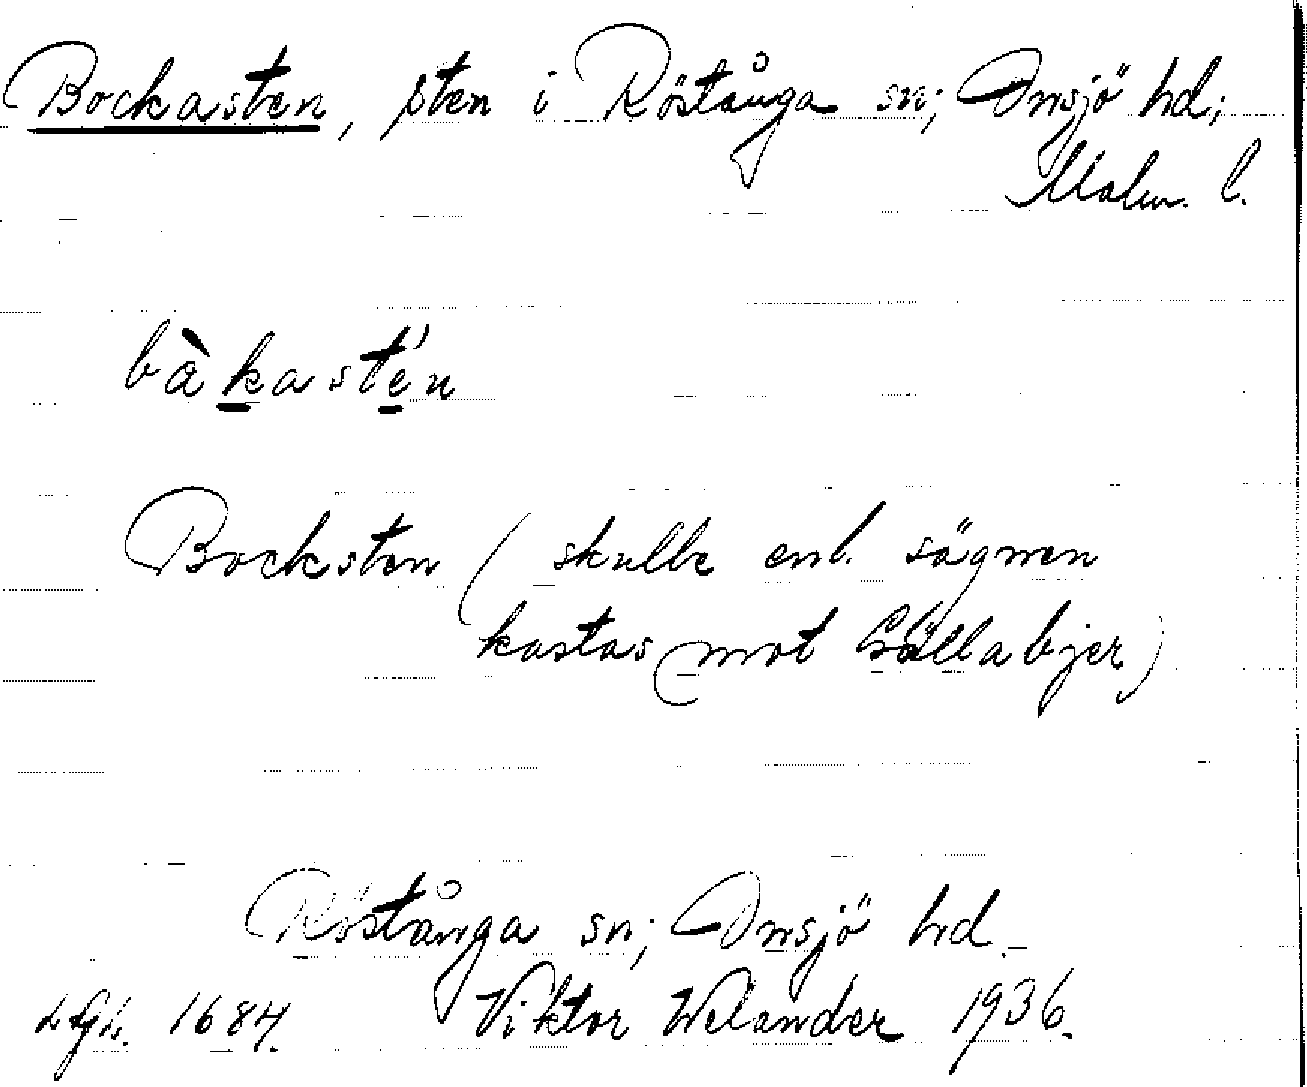 Bockasten, sten i Röstånga sn; Onsjö hd;
Malm. l.
bàkastén
Bocksten (skulle enl. sägnen
kastas mot Söllabjer)
Röstånga sn; Onsjö hd.
1684. Viktor Welander 1936.